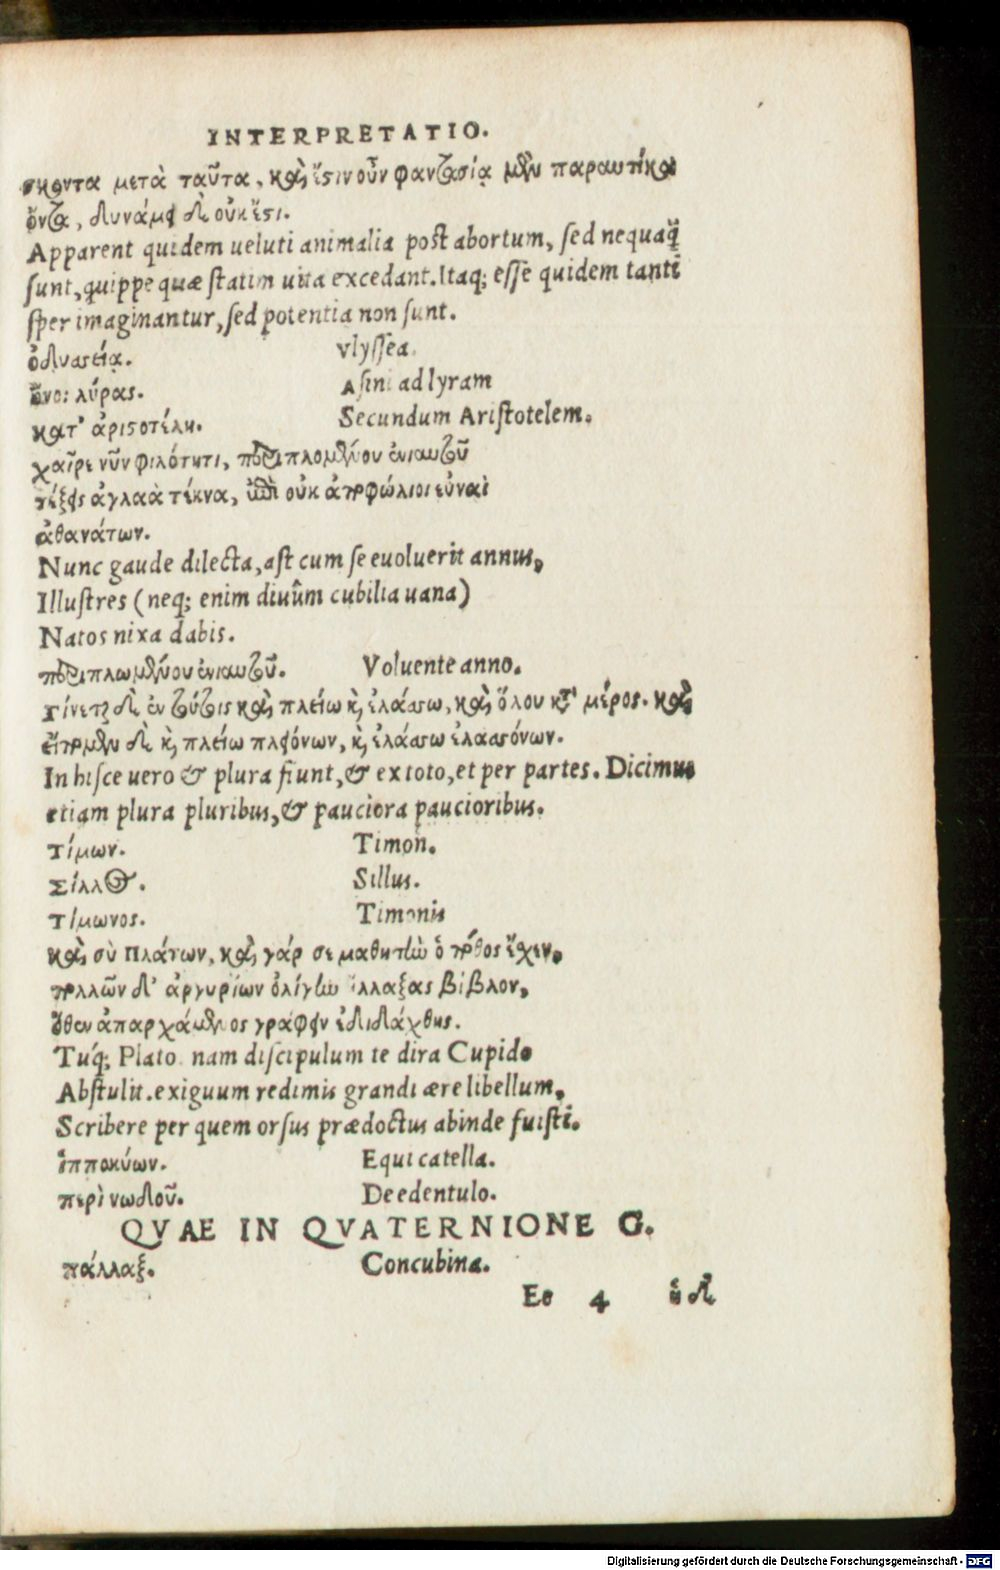 INTERPRETATIO.
σκοντα μετὰ ταῦτα, καὶ ἔστιν οὖν φαντασίᾳ μὲν παραυτίκα
ὄντα, δυνάμει δὲ οὐκ ἔστι.
Apparent quidem ueluti animalia post abortum, sed nequaq̃
sunt, quippe quæ statim uita excedant. Itaq; esse quidem tanti
sper imaginantur, sed potentia non sunt.
ὀδυσσείᾳ. Vlyssea.
ὄνοι λύρας. Asini ad lyram
κατ' ἀριστοτέλη. Secundum Aristotelem.
χαῖρε νῦν φιλότητι, περιπλομένου ἐνιαυτοῦ
τέξεις ἀγλαὰ τέκνα, ἐπεὶ οὐκ ἀποφώλιοι εὐναὶ
ἀθανάτων.
Nunc gaude dilecta, ast cum se euoluerit annus,
Illustres (neq; enim diuûm cubilia uana)
Natos nixa dabis.
περιπλωμένου ἐνιαυτοῦ. Voluente anno.
Γίνεται δὲ ἐν τούτοις καὶ πλείω καὶ ἐλάσσω, καὶ ὅλου κατὰ μέρος. καὶ
εἴπομεν δὲ καὶ πλείω πλειόνων, καὶ ἐλάσσω ἐλασσόνων.
In hisce uero & plura fiunt, & ex toto, et per partes. Dicimus
etiam plura pluribus, & pauciora paucioribus.
Τίμων. Timon.
Σίλλος. Sillus.
Τίμωνος. Timonis
καὶ σὺ Πλάτων, καὶ γάρ σε μαθητὴν ὁ πόθος ἔχεν,
πολλῶν δ' ἀργυρίων ὀλίγην ἤλλαξας βίβλον,
ὅθεν ἀπαρχάμενος γράφειν ἐδιδάχθης.
Tuq́; Plato nam discipulum te dira Cupido
Abstulit. exiguum redimis grandi ære libellum,
Scribere per quem orsus prædoctus abinde fuisti.
ἱπποκύων. Equi catella.
περὶ νωδοῦ. De edentulo.
QVAE IN QVATERNIONE G.
πάλλαξ. Concubina.
Ee 4 ἡ δὲ
Digitalisierung gefördert durch die Deutsche Forschungsgemeinschaft - DFG